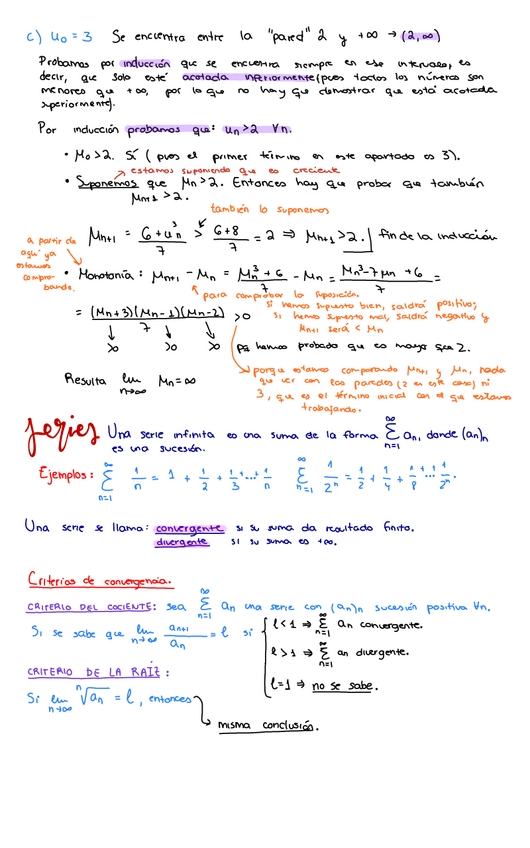 c) u₀ = 3 Se encuentra entre la "pared" 2 y +∞ → (2, ∞)
Probamos por inducción que se encuentra siempre en ese intervalo, es
decir, que solo esté acotada inferiormente (pues todos los números son
menores que +∞, por lo que no hay que demostrar que está acotada
superiormente).
Por inducción probamos que: uₙ > 2 ∀n.
• u₀ > 2. Sí (pues el primer término en este apartado es 3).
estamos suponiendo que es creciente
• Suponemos que uₙ > 2. Entonces hay que probar que también
uₙ₊₁ > 2.
también lo suponemos
uₙ₊₁ = (6 + uₙ³)/7 > (6+8)/7 = 2 ⇒ uₙ₊₁ > 2. | fin de la inducción
a partir de
aquí ya
estamos
compro-
bando.
• Monotonía: uₙ₊₁ − uₙ = (uₙ³ + 6)/7 − uₙ = (uₙ³ − 7uₙ + 6)/7 =
para comprobar la suposición.
si hemos supuesto bien, saldrá positivo;
si hemos supuesto mal, saldrá negativo y
uₙ₊₁ será < uₙ
= (uₙ+3)(uₙ−1)(uₙ−2)/7 > 0
>0 >0 >0 pq hemos probado que es mayor que 2.
porque estamos comparando uₙ₊₁ y uₙ, nada
que ver con las paredes (2 en este caso) ni
3, que es el término inicial con el que estamos
trabajando.
Resulta lim n→∞ uₙ = ∞
Series Una serie infinita es una suma de la forma ∑ₙ₌₁^∞ aₙ, donde (aₙ)ₙ
es una sucesión.
Ejemplos: ∑ₙ₌₁^∞ 1/n = 1 + 1/2 + 1/3 + ... + 1/n ∑ₙ₌₁^∞ 1/2ⁿ = 1/2 + 1/4 + 1/8 + ... + 1/2ⁿ.
Una serie se llama: convergente si su suma da resultado finito.
divergente si su suma es +∞.
Criterios de convergencia.
CRITERIO DEL COCIENTE: sea ∑ₙ₌₁^∞ aₙ una serie con (aₙ)ₙ sucesión positiva ∀n.
Si se sabe que lim n→∞ aₙ₊₁/aₙ = l si { l < 1 ⇒ ∑ₙ₌₁^∞ aₙ convergente.
l > 1 ⇒ ∑ₙ₌₁^∞ an divergente.
l = 1 ⇒ no se sabe.
CRITERIO DE LA RAÍZ:
Si lim n→∞ ⁿ√aₙ = l, entonces
misma conclusión.